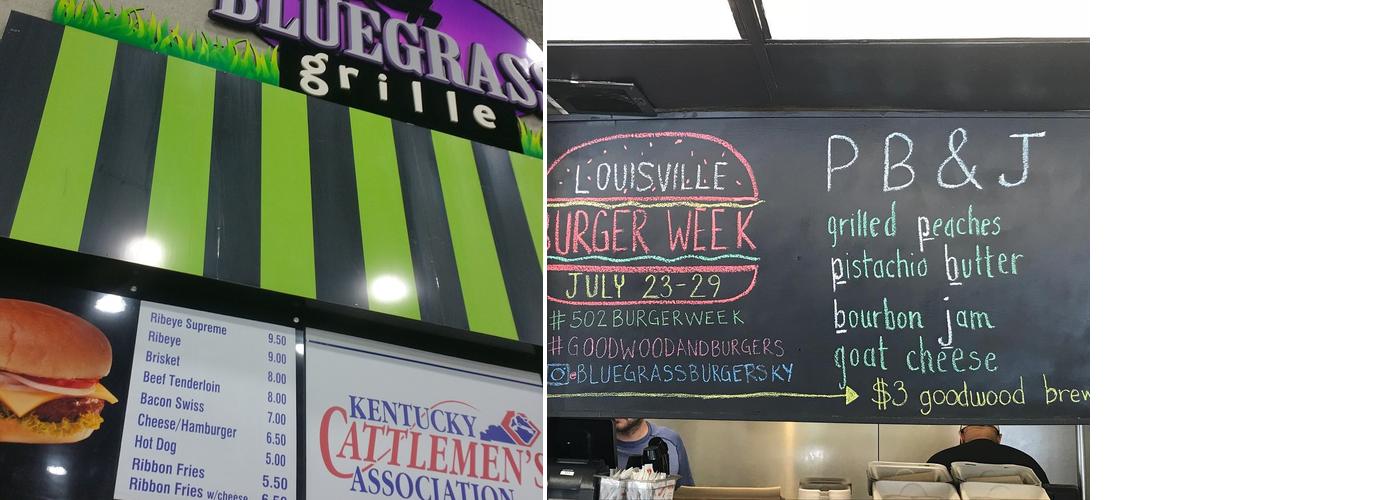 BLUEGRASS
grille
Ribeye Supreme 9.50
Ribeye 9.00
Brisket 8.00
Beef Tenderloin 8.00
Bacon Swiss 7.00
Cheese/Hamburger 6.50
Hot Dog 5.00
Ribbon Fries 5.50
Ribbon Fries w/cheese 6.50
KENTUCKY
CATTLEMEN'S
ASSOCIATION
LOUISVILLE
BURGER WEEK
JULY 23-29
#502BURGERWEEK
#GOODWOODANDBURGERS
@BLUEGRASSBURGERSKY
PB&J
grilled peaches
pistachio butter
bourbon jam
goat cheese
$3 goodwood brew